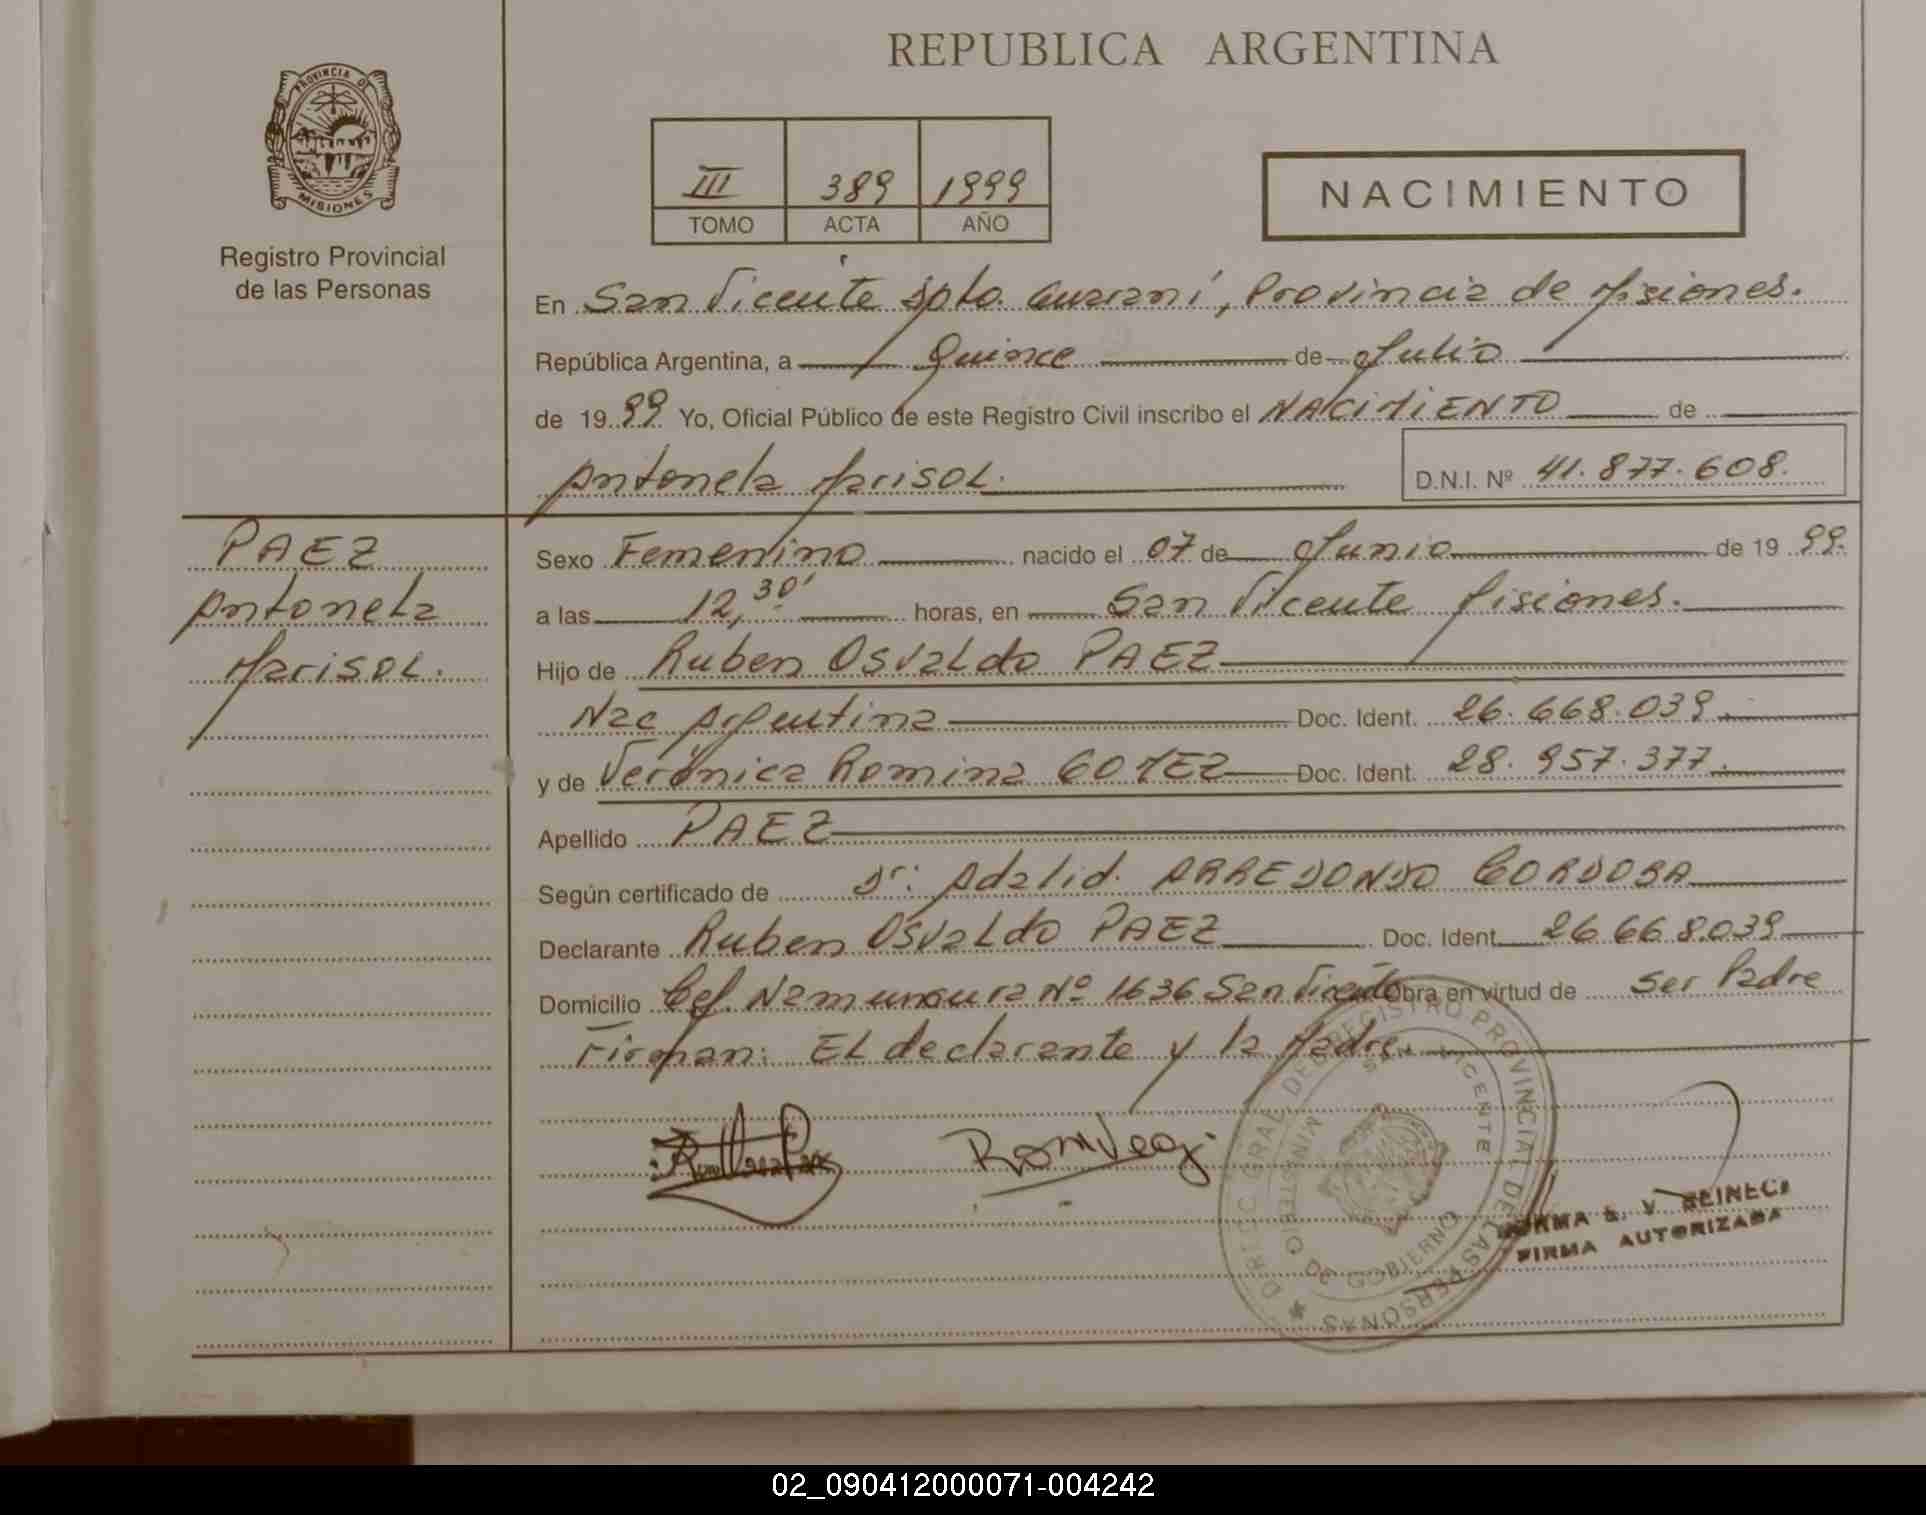 REPUBLICA ARGENTINA
PROVINCIA DE
MISIONES
Registro Provincial
de las Personas
III 389 1999
TOMO ACTA AÑO
NACIMIENTO
En San Vicente Dpto. Guaraní, Provincia de Misiones.
República Argentina, a Quince de Julio
de 19 99 Yo, Oficial Público de este Registro Civil inscribo el NACIMIENTO de
Antonela Marisol.
D.N.I. Nº 41.877.608.
PAEZ
Antonela
Marisol.
Sexo Femenino nacido el 07 de Junio de 19 99.
a las 12,30' horas, en San Vicente Misiones.
Hijo de Ruben Osvaldo PAEZ
Nac Argentina Doc. Ident. 26.668.039
y de Verónica Romina GOMEZ Doc. Ident. 28.957.377.
Apellido PAEZ
Según certificado de Dr: Adalid. ARREDONDO CORDOBA
Declarante Ruben Osvaldo PAEZ Doc. Ident. 26.668.039
Domicilio Cef. Namuncura Nº 1636 San Vicente Obra en virtud de ser Padre
Firman: El declarante y la Madre.
DREC GRAL DEL REGISTRO PROVINCIAL DE LAS PERSONAS
MINISTERIO DE GOBIERNO
SAN VICENTE
NORMA E. V. REINECK
FIRMA AUTORIZADA
02_090412000071-004242